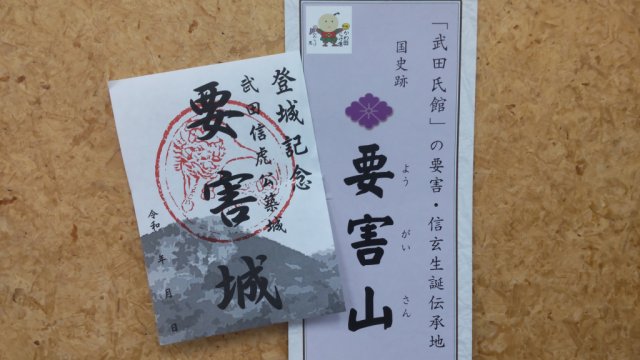 登城記念
武田信虎公築城
要害城
令和 年 月 日
「武田氏館」の要害・信玄生誕伝承地
国史跡
要害山
よう がい さん